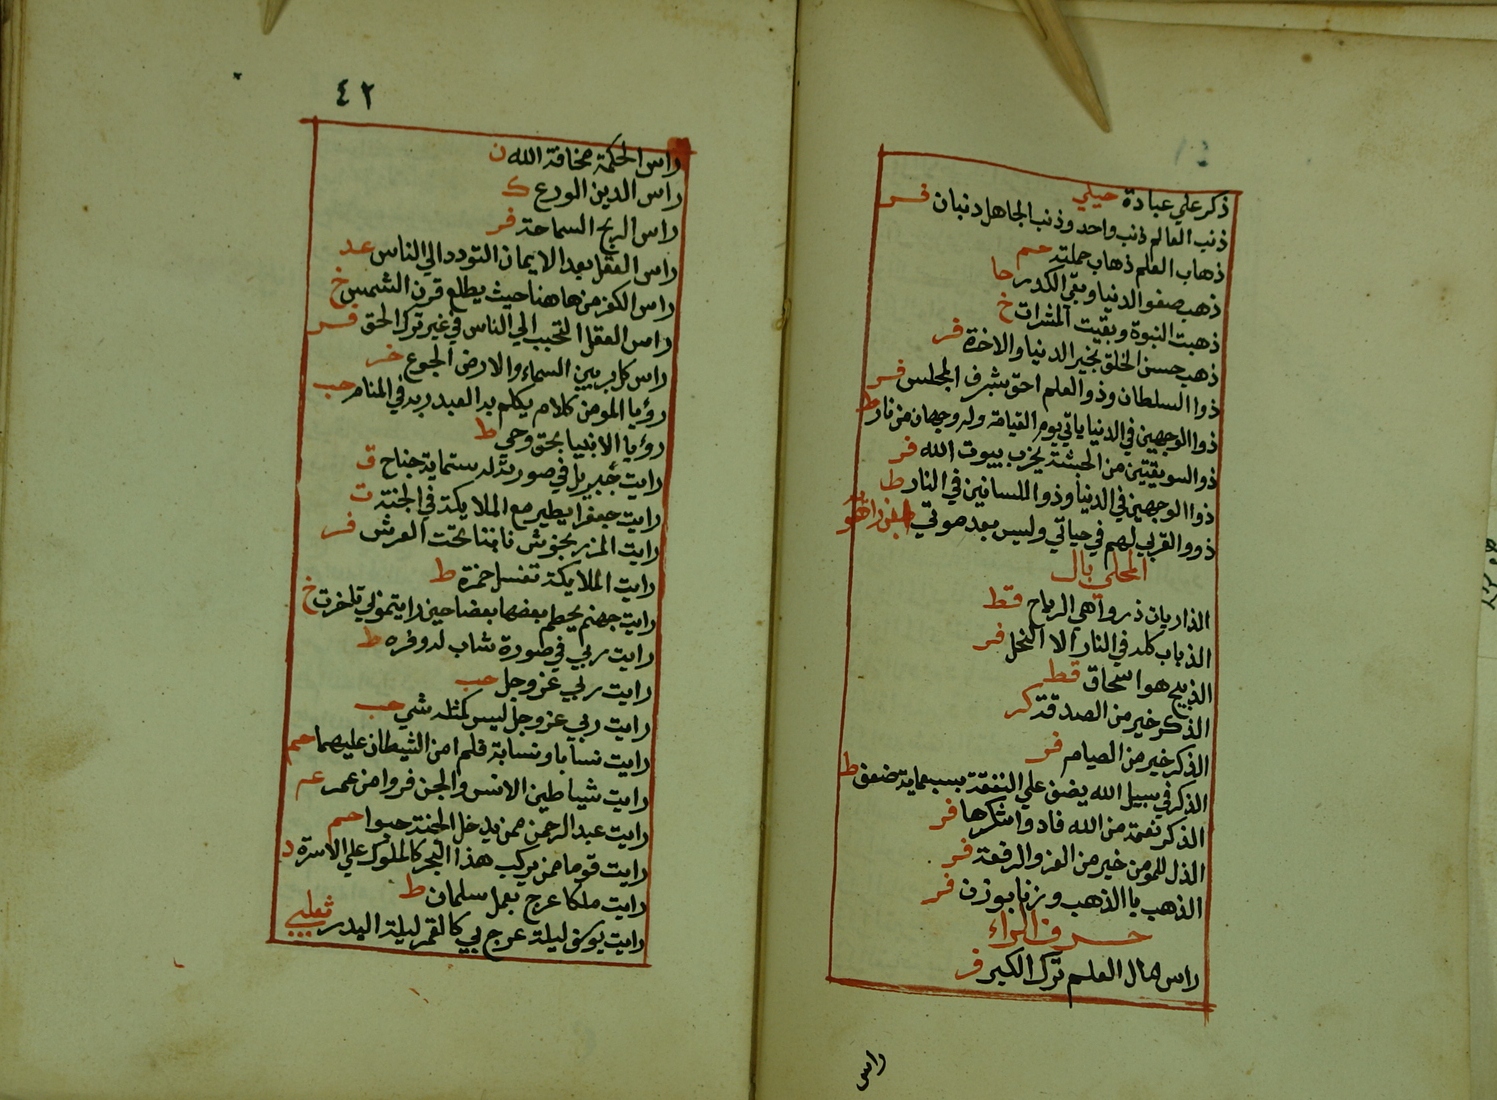 ذكر علي عبادة حيلي
ذنب العالم ذنب واحد وذنب الجاهل ذنبان فر
ذهاب العلم ذهاب حملته حم
ذهب صفو الدنيا وبقي الكدر حا
ذهبت النبوة وبقيت المبشرات خ
ذهب حسن الخلق بخير الدنيا والاخرة فر
ذوا السلطان وذو العلم احق بشرف المجلس فر
ذوا الوجهين في الدنيا ياتي يوم القيامة وله وجهان من نار ط
ذوالسويقتين من الحبشة يخرب بيوت الله فر
ذوا الوجهين في الدنيا وذو اللسانين في النار ط
ذووا القربي لهم في حياتي وليس بعد موتي
المحلي بال
الذاريات ذروا هي الرياح قط
الذباب كله في النار الا النحل فر
الذبيح هو اسحاق قط
الذكر خير من الصدقة كر
الذكر خير من الصيام فر
الذكر في سبيل الله يضعف علي النفقة بسبعماية ضعف ط
الذكر نعمة من الله فادوا شكرها فر
الذل للمومن خير من العز والرفعة فر
الذهب باالذهب وزنا بوزن فر
حرف الراء
راس مال العلم ترك الكبر فر
راس
٤٢
راس الحكمة مخافة الله ن
راس الدين الورع ك
راس الربح السماحة فر
راس العقل بعد الايمان التودد الي الناس عد
راس الكفر من هاهنا حيث يطلع قرن الشمس خ
راس العقل التحبب الي الناس في غير ترك الحق فر
راس كل بر بين السماء والارض الجوع فر
رؤيا المومن كلام يكلم به العبد ربه في المنام حب
رؤيا الانبيا بحق وحي ط
رايت جبريل في صورته له ستماية جناح ق
رايت جعفرا يطير مع الملايكة في الجنة ت
رايت المزر بجوش نابتا تحت العرش فر
رايت الملايكة تغسل حمزة ط
رايت جهنم يحطم بعضها بعضا حين رايتموني تاخرت خ
رايت ربي في صورة شاب له وفره ط
رايت ربي عز وجل حب
رايت ربي عز وجل ليس كمثله شي حب
رايت نسابا ونسابة فلم امن الشيطان عليهما حم
رايت شياطين الانس والجن فروا من عمر عم
رايت عبد الرحمن ممن يدخل الجنة حبوا حم
رايت قوما ممن يركب هذا البحر كالملوك علي الاسرة د
رايت ملكا عرج بعمل سلمان ط
رايت يوسف ليلة عرج بي كالقمر ليلة البدر ثعلبي